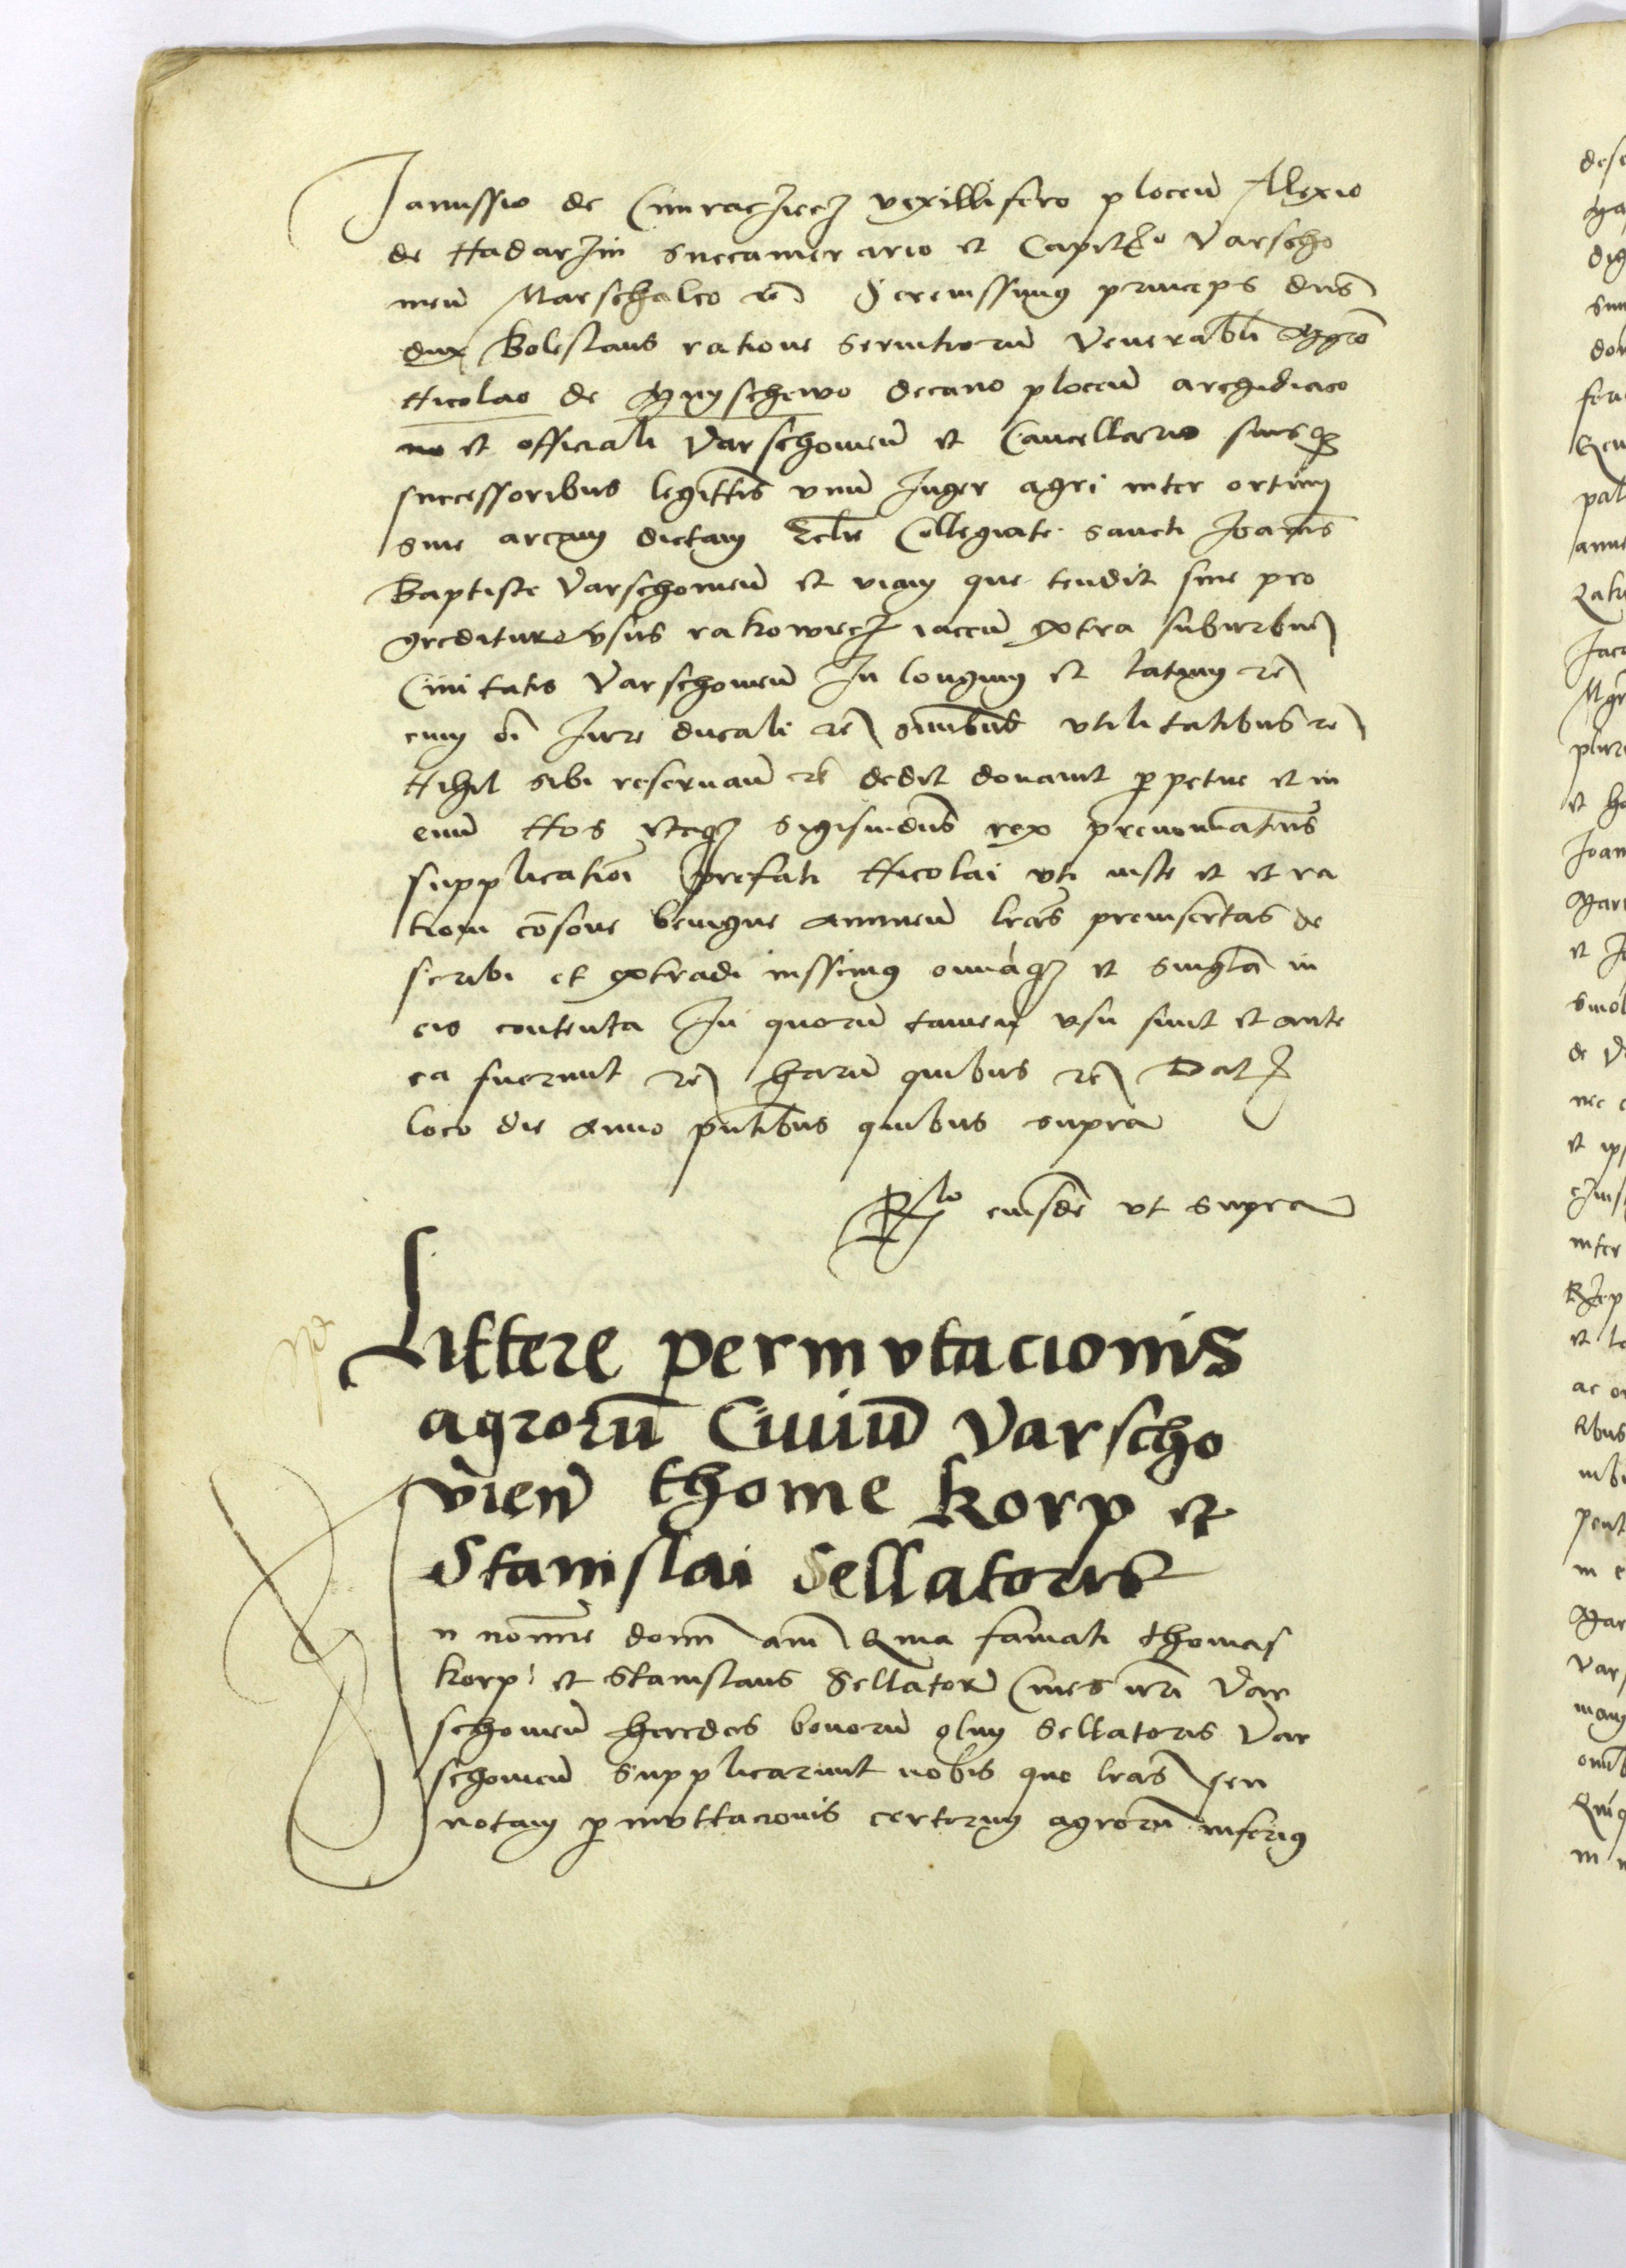 Janussio de Cunraczicz vexillifero plocen Alexio
de Nadarzin succamerario et Capitneo Varscho
vien Marschalco etc Serenissimus princeps dns
dux Boleslaus ratione servitiorum Venerabili Mgro
Nicolao de decano plocen archidiaco
no et officiali Varschovien et Cancellario suisqz
successoribus legittis unum Juger agri inter ortum
sive aream dictam Eclie Collegiate sancti Joanis
Baptiste Varschovien et viam que tendit sive pro
greditur vsus rakowiecz iacen extra suburbiu
Civitatis Varschovien In longum et latum etc
cum oi Jure ducali etc omibus vtilitatibus etc
Nihil sibi reservan etc dedit donavit perpetue et in
evum Nos itaqz Sigismudus rex prenominatus
supplicatioi prefati Nicolai vti iuste et et ra
tioni cosone benigne annuen lras preinsertas de
scribi et extradi iussimus omiaqz et singula in
eis contenta In quorum tamen vsu sunt et ante
ea fuerunt etc harum quibus etc Dat
loco die anno pntibus quibus supra
Rlo eiusde vt supra
Littere permvtacionis
agrorū Civiū Varscho
vien thome Korp et
Stanislai Sellatoris
n nomine domi am Quia famati thomas
Korp et Stanislaus Sellatoru Cives nri Var
schovien heredes bonorū olim Sellatoris Var
schovien Supplicarunt nobis quo lras seu
notam permuttacionis certorum agrorū inferius